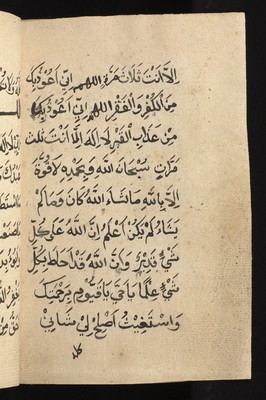 الا انت ثلاث مرة اللهم اني اعوذ بك
من الكفر والفقر اللهم اني اعوذ بك
من عذاب القبر لا اله الا انت ثلث
مرات سبحان الله وبحمده لا قوة
الا بالله ما شاء الله كان وما لم
يشاء لم يكن اعلم ان الله على كل
شيء قدير وان الله قد احاط بكل
شيء علما يا حي يا قيوم برحمتك
واستغيث اصلح لي شاني